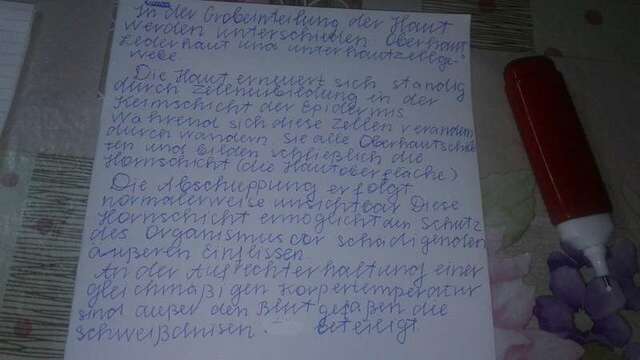 In der Grobeinteilung der Haut
werden unterschieden Oberhaut
Lederhaut und unterhautzellge-
webe
Die Haut erneuert sich ständig
durch Zellneubiedung in der
Keimschicht der Epidermis
Während sich diese Zellen verändern
durchwandern Sie alle Oberhautschich
ten und bilden schließlich die
Hornschicht (die Hautoberfläche)
Die Abschuppung erfolgt
normalerweise unsichtbar Diese
Hornschicht ermöglicht den Schutz
des Organismus vor schädigenden
äußeren Einflissen
An der Aufrechterhaltung einer
gleichmäßigen Körpertemperatur
sind außer den Blutgefäßen die
schweißdrüsen beteiligt